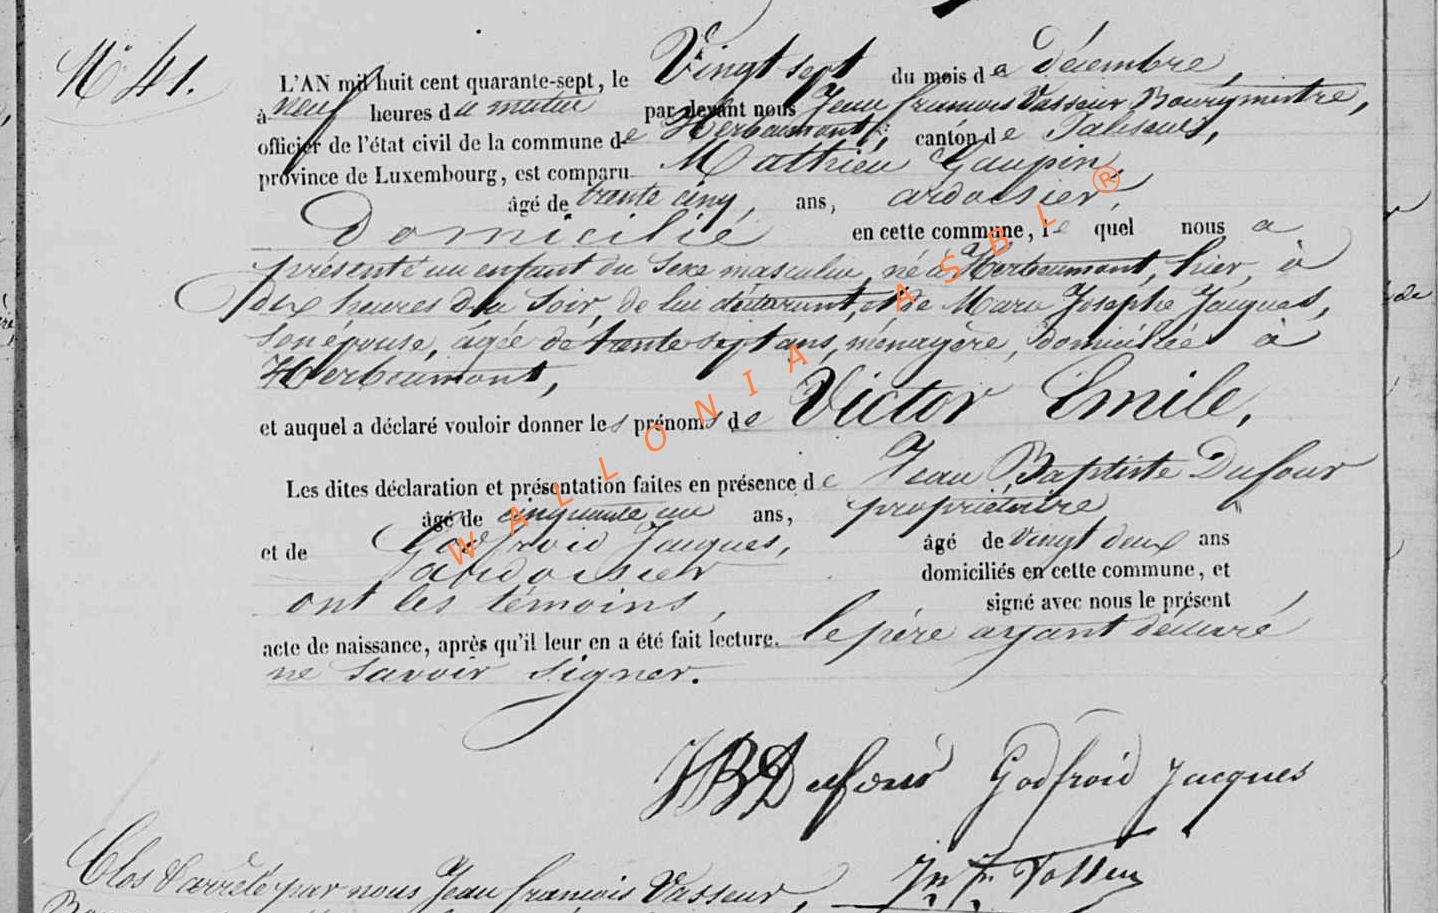 N° 41.
L'AN mil huit cent quarante-sept, le Vingt sept du mois de Décembre,
à neuf heures du matin par devant nous Jean françois Vasseur Bourgmestre,
officier de l'état civil de la commune de Herbeumont, canton de Paliseul,
province de Luxembourg, est comparu Mathieu Gaupin,
âgé de trente cinq, ans, ardoisier,
Domicilié en cette commune, lequel nous a
présenté un enfant du sexe masculin, né à Herbeumont, hier, à
dix heures du soir, de lui déclarant, et de Marie Josephe Jacques,
son épouse, âgée de trente sept ans, ménagère, domiciliée à
Herbeumont,
et auquel a déclaré vouloir donner les prénoms de Victor Emile,
Les dites déclaration et présentation faites en présence de Jean Baptiste Dufour
âgé de cinquante un ans, propriétaire
et de Godfroid Jacques, âgé de vingt deux ans
ardoisier domiciliés en cette commune, et
ont les témoins, signé avec nous le présent
acte de naissance, après qu'il leur en a été fait lecture. le père ayant déclaré
ne savoir signer.
JB Dufour Godfroid Jacques
Clos & arrêté par nous Jean françois Vasseur,
WALLONIA ASBL ®